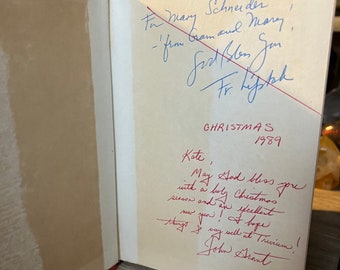 For Mary Schneider
- from Gram and Mary!
God Bless You!
Fr.
CHRISTMAS
1989
Kate,
May God bless you
with a holy Christmas
season and an excellent
new year! I hope
things go very well at Trinium!
John